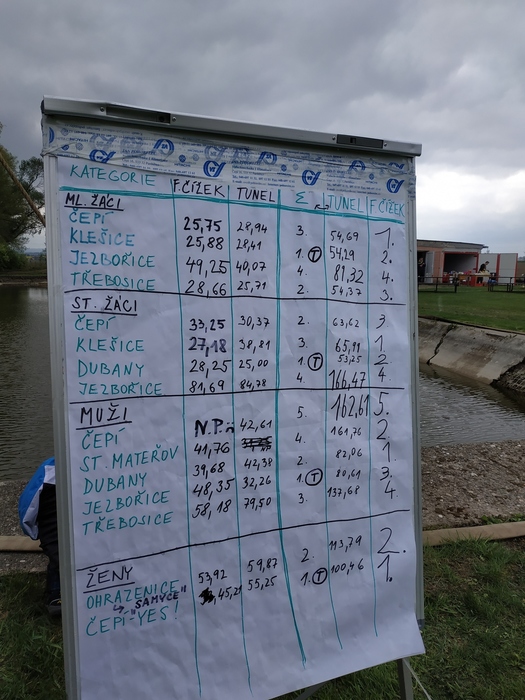 KATEGORIE F.ČÍZEK TUNEL Σ TUNEL F.ČÍZEK
ML. ŽÁCI
ČEPÍ 25,75 28,94 3. 54,69 1.
KLEŠICE 25,88 28,41 1. T 54,29 2.
JEZBOŘICE 49,25 40,07 4. 81,32 4.
TŘEBOSICE 28,66 25,71 2. 54,37 3.
ST. ŽÁCI
ČEPÍ 33,25 30,37 2. 63,62 3
KLEŠICE 27,18 38,81 3. 65,91 1.
DUBANY 28,25 25,00 1. T 53,25 2
JEZBOŘICE 81,69 84,78 4. 166,47 4.
MUŽI
ČEPÍ N.P. 42,61 5. 162,61 5.
ST. MATEŘOV 41,76 4. 161,76 2.
DUBANY 39,68 42,38 2. 82,06 1.
JEZBOŘICE 48,35 32,26 1. T 80,61 3.
TŘEBOSICE 58,18 79,50 3. 137,68 4.
ŽENY
OHRAZENICE 53,92 59,87 2. 113,79 2.
"SAMYCE"
ČEPÍ-YES! 45,21 55,25 1. T 100,46 1.